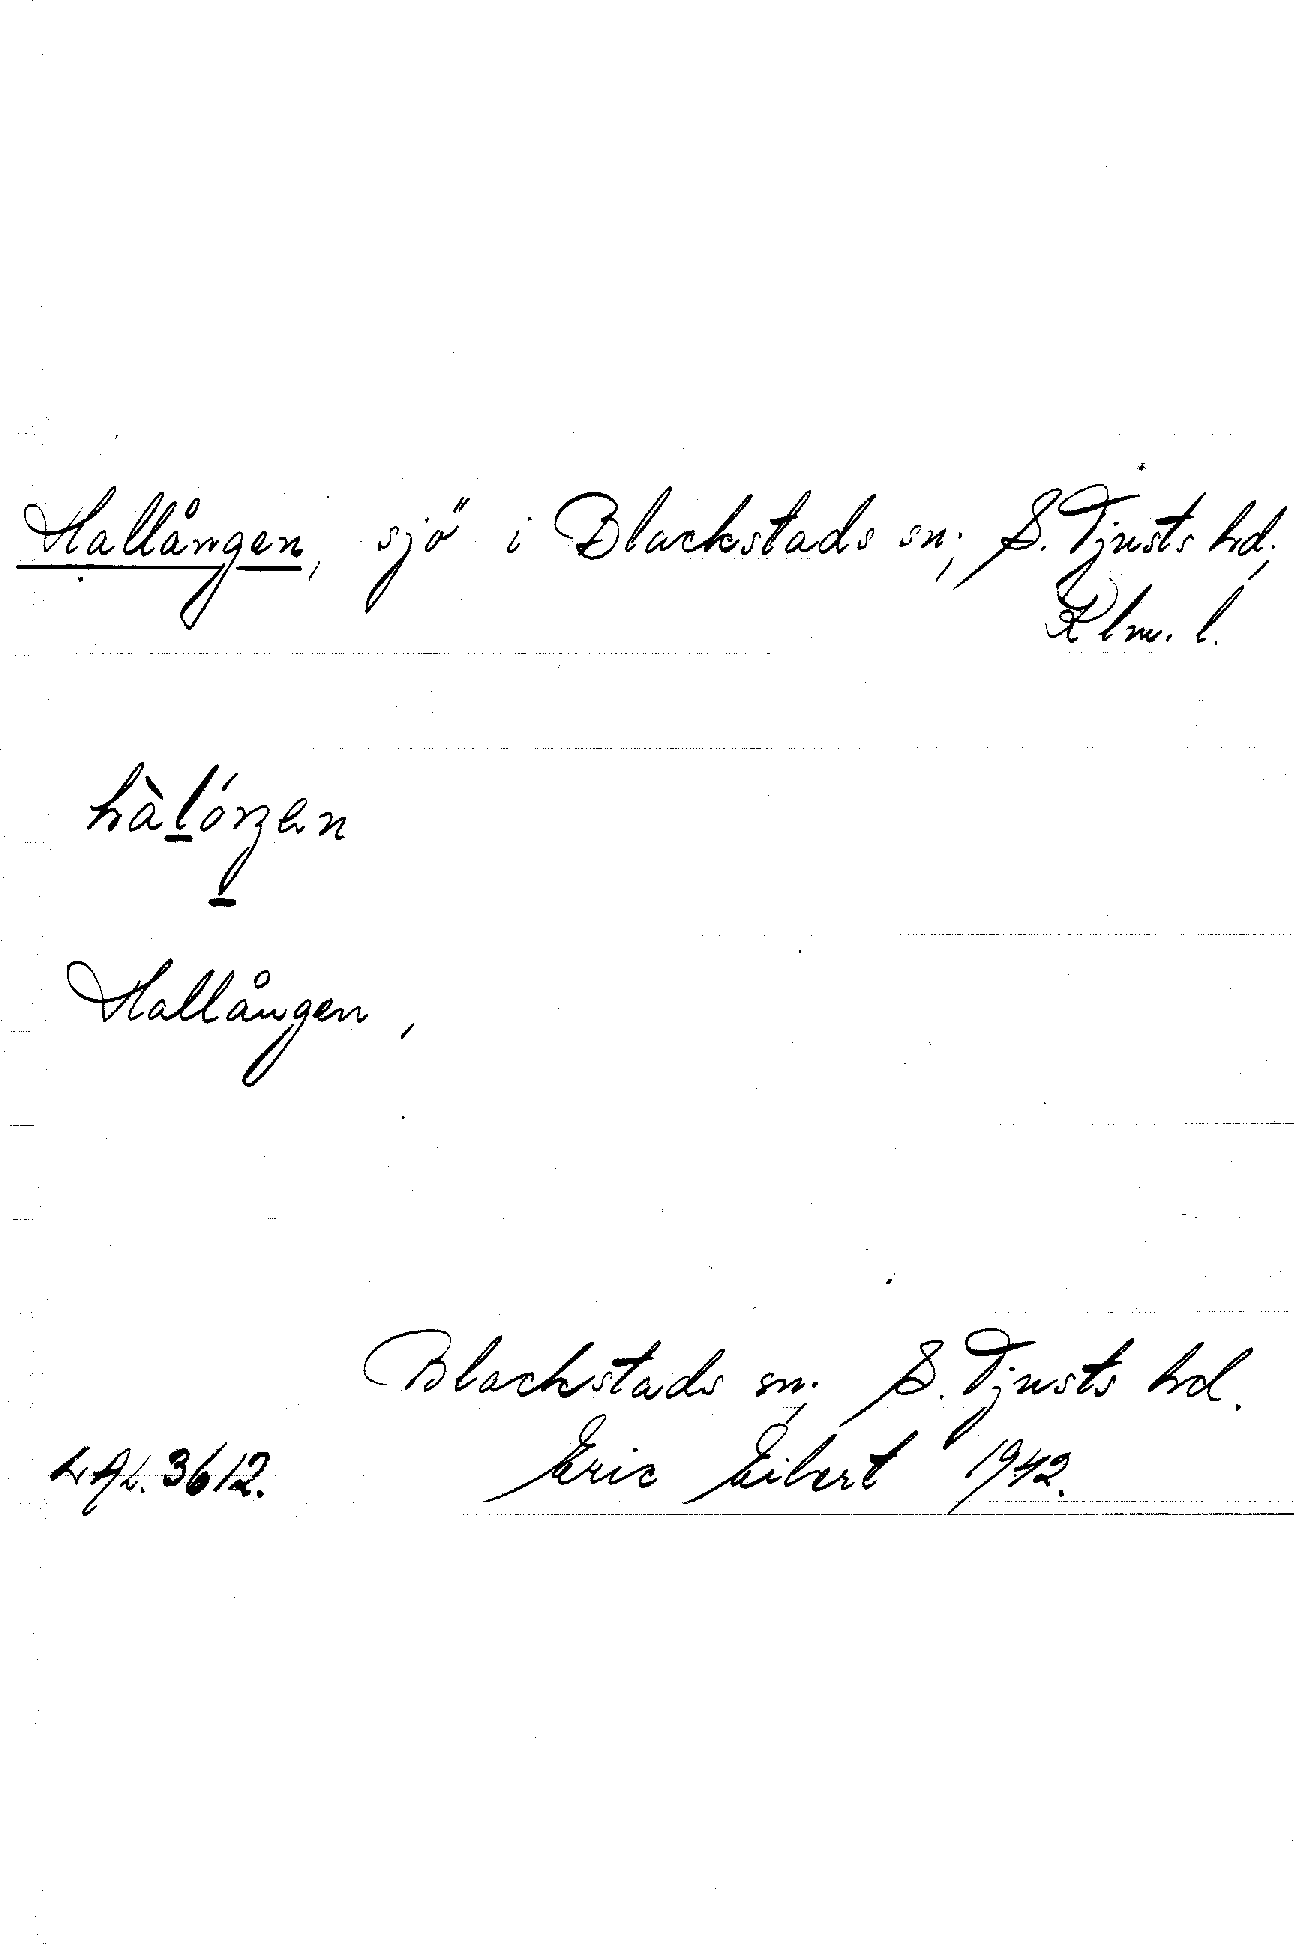 Hallången, sjö i Blackstads sn; S. Tjusts hd;
Klm. l.
hàl̲óŋen
Hallången,
Blackstads sn; S. Tjusts hd.
LAL. 3612. Eric Eibert 1942.